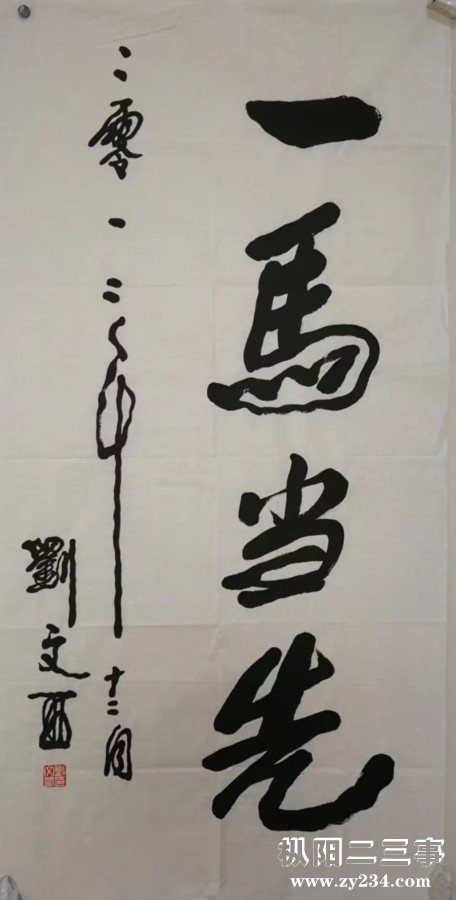 一馬当先
二零一二年十二月
劉文西
枞阳二三事
www.zy234.com